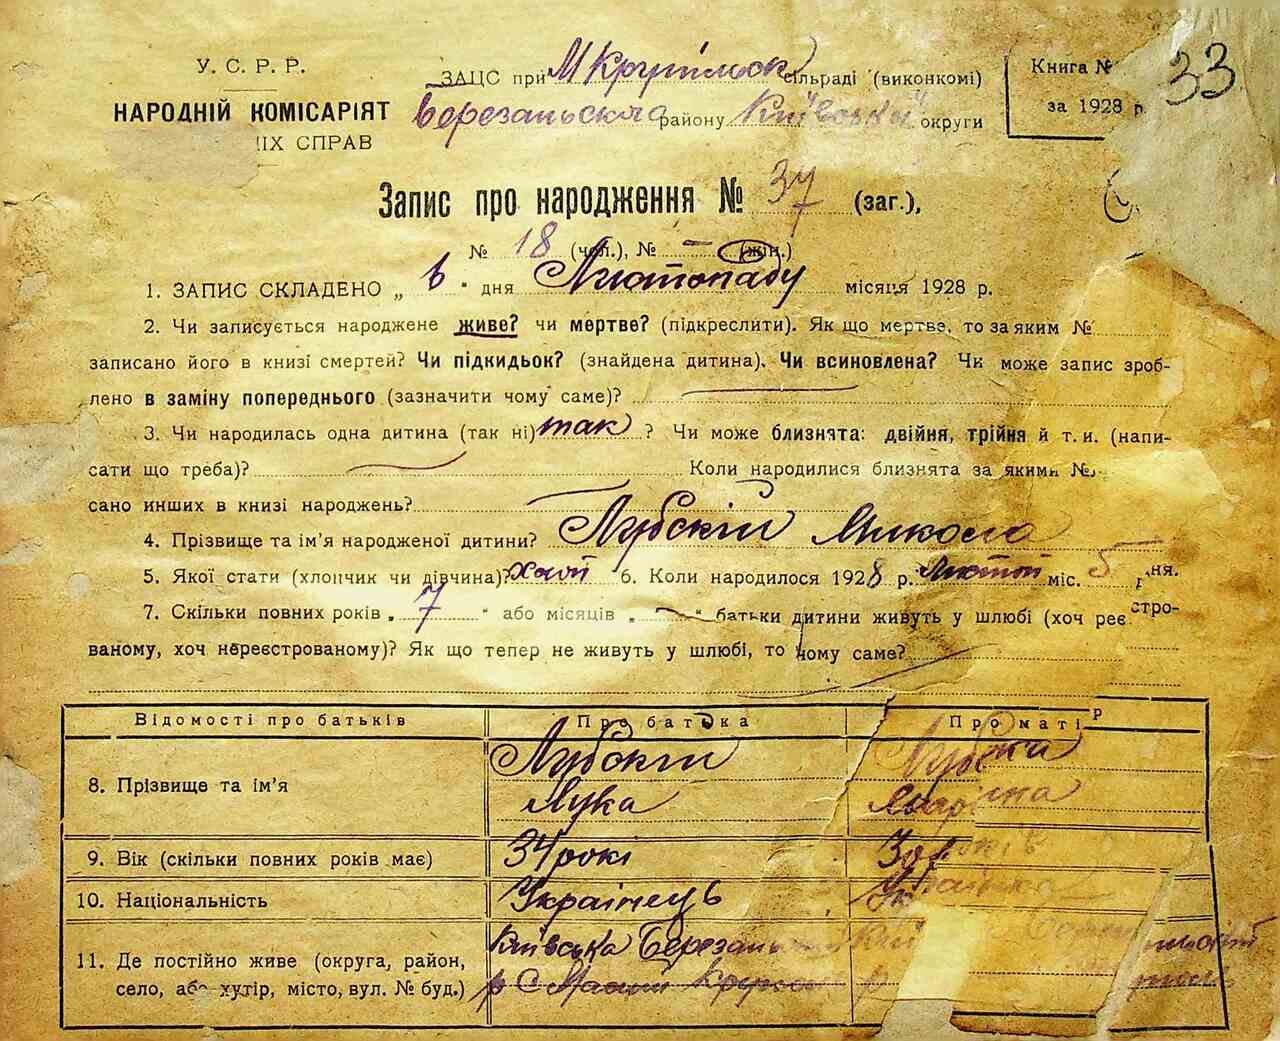 У. С. Р. Р.
НАРОДНІЙ КОМІСАРІЯТ
ІХ СПРАВ
ЗАЦС при М Крупільск сільраді (виконкомі)
Березанського району Київської округи
Книга №
за 1928 р.
33
Запис про народження № 37 (заг.),
№ 18 (чол.), № – (жін.)
1. ЗАПИС СКЛАДЕНО „ 6 " дня Листопаду місяця 1928 р.
2. Чи записується народжене живе? чи мертве? (підкреслити). Як що мертве, то за яким №
записано його в книзі смертей? Чи підкидьок? (знайдена дитина). Чи всиновлена? Чи може запис зроб-
лено в заміну попереднього (зазначити чому саме)?
3. Чи народилась одна дитина (так ні) так ? Чи може близнята: двійня, трійня й т. и. (напи-
сати що треба)? Коли народилися близнята за якими №
сано инших в книзі народжень?
4. Прізвище та ім'я народженої дитини? Лубскій Микола
5. Якої стати (хлопчик чи дівчина)? хлоп 6. Коли народилося 1928 р. Листоп міс. 5 дня.
7. Скільки повних років „ 7 " або місяців „ – " батьки дитини живуть у шлюбі (хоч реєстро-
ваному, хоч нереєстрованому)? Як що тепер не живуть у шлюбі, то чому саме?
Відомості про батьків Про батька Про матір
8. Прізвище та ім'я Лубскій Лубска
Лука
9. Вік (скільки повних років має) 34 рокі 30
10. Національність Украінець Украінка
11. Де постійно живе (округа, район, Київська Березансь
село, або хутір, місто, вул. № буд.) р С Малий